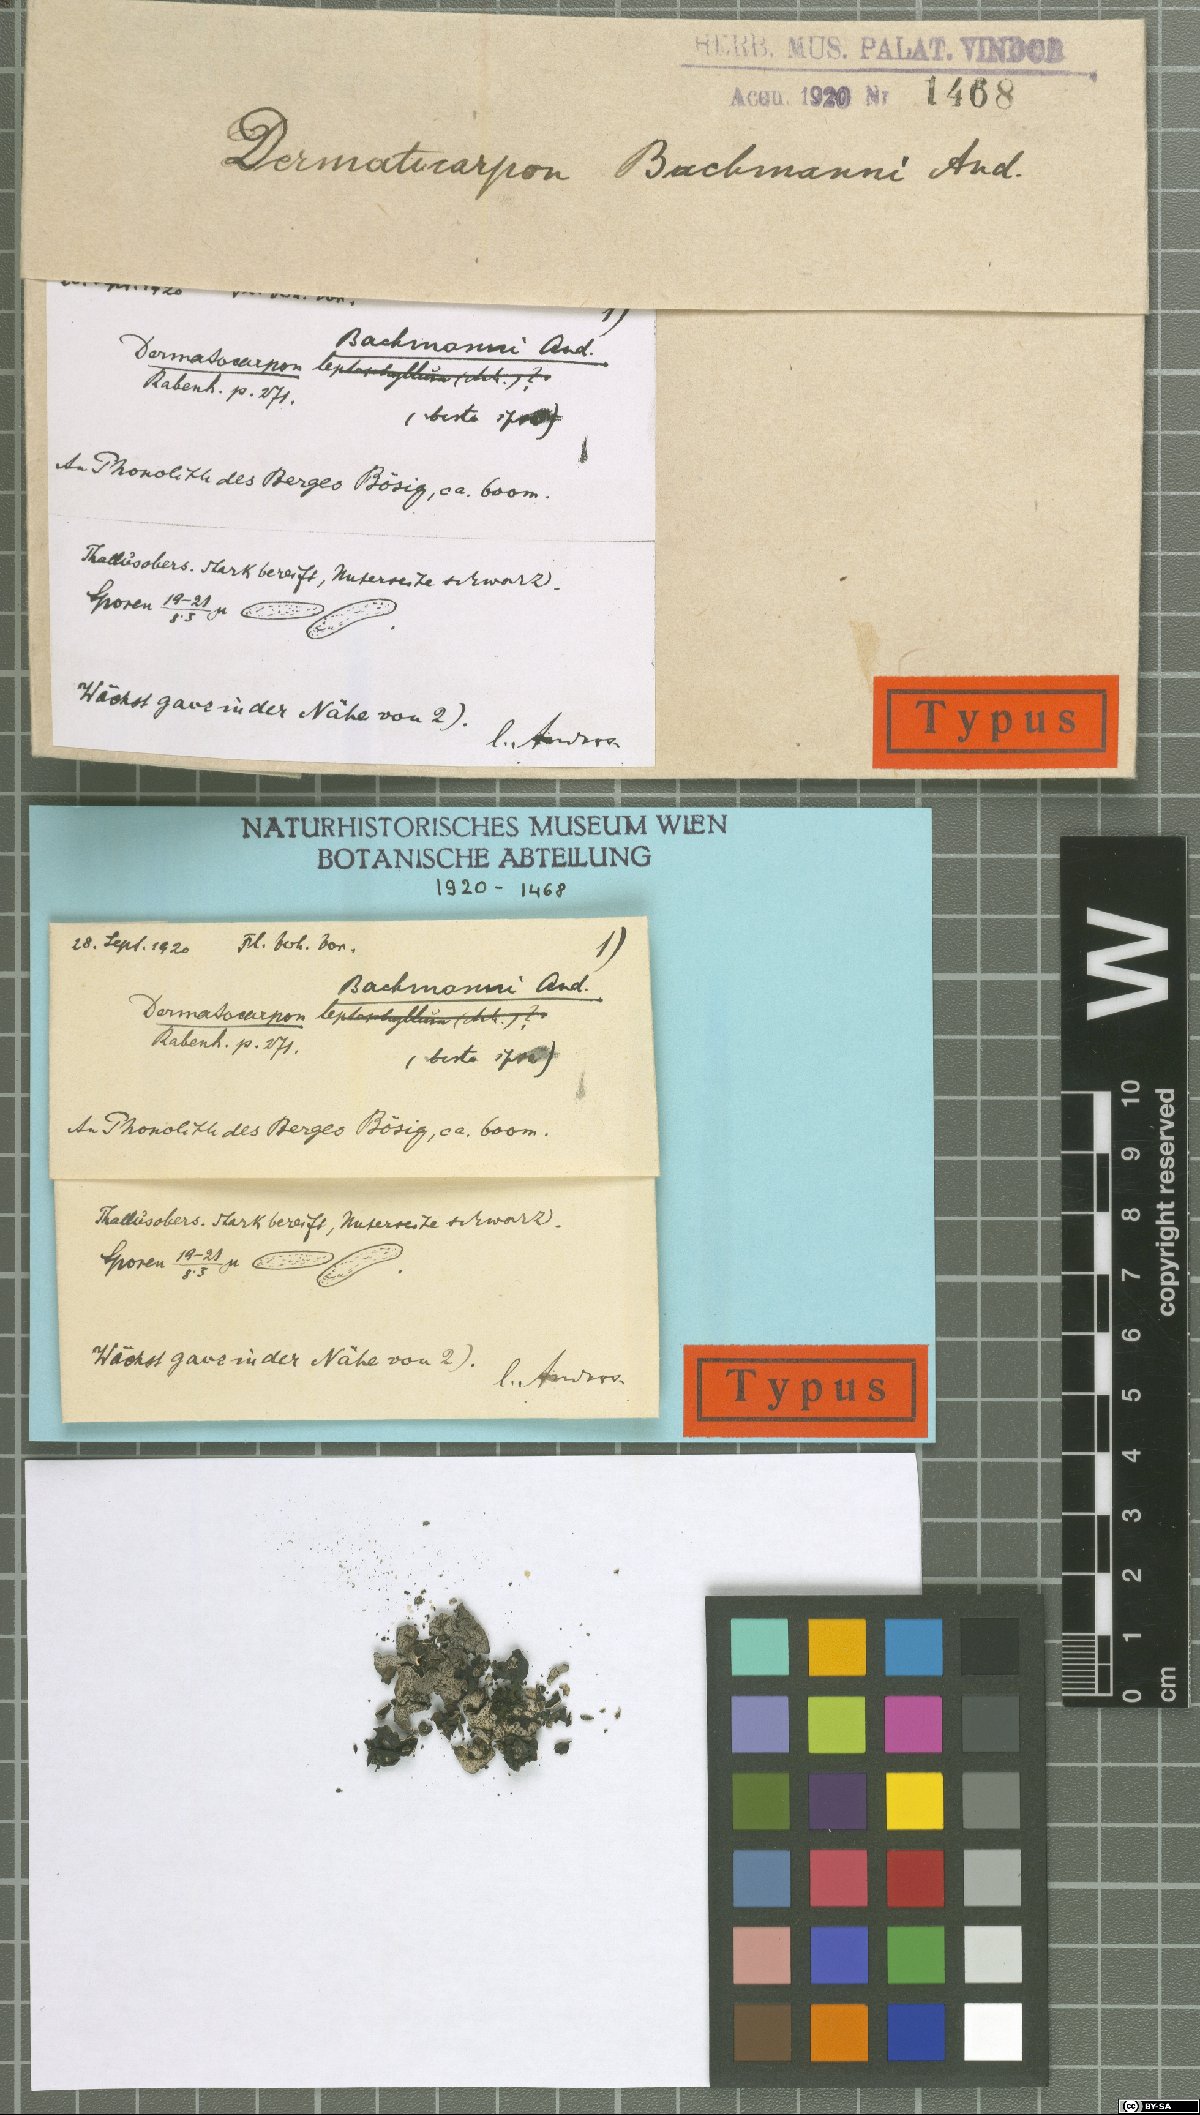 HERB. MUS. PALAT. VINDOB
Acqu. 1920 Nr 1468
Dermatocarpon Bachmanni And.
28. Sept. 1920 Fl. boh. bor.
1)
Bachmanni And.
Dermatocarpon leptophyllum (Ach.)?
Rabenh. p. 271.
(beste
An Phonolith des Berges Bösig, ca. 600m.
Thallusobers. stark bereift, Unterseite schwarz.
Sporen 19-21/8·5 µ
Wächst ganz in der Nähe von 2).
l. Anders
Typus
NATURHISTORISCHES MUSEUM WIEN
BOTANISCHE ABTEILUNG
1920 - 1468
28. Sept. 1920 Fl. boh. bor.
1)
Bachmanni And.
Dermatocarpon leptophyllum (Ach.)?
Rabenh. p. 271.
(beste
An Phonolith des Berges Bösig, ca. 600m.
Thallusobers. stark bereift, Unterseite schwarz.
Sporen 19-21/8·5 µ
Wächst ganz in der Nähe von 2).
l. Anders
Typus
W
10 9 8 7 6 5 4 3 2 1 0
cm
copyright reserved
cc BY-SA